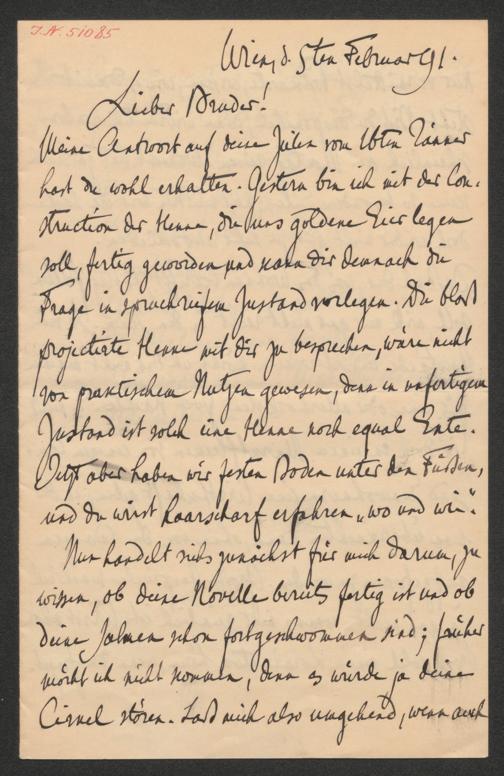 I.N. 51085
Wien, d. 5ten Februar 91.
Lieber Bruder!
Meine Antwort auf deine Zeilen vom 16ten Jänner
hast du wohl erhalten. Gestern bin ich mit der Con-
struction der Henne, die uns goldene Eier legen
soll, fertig geworden und kann dir demnach die
Frage in spruchreifem Zustand vorlegen. Die bloß
projectirte Henne mit dir zu besprechen, wäre nicht
von praktischem Nutzen gewesen, denn in unfertigem
Zustand ist solch eine Henne noch egual Ente.
Jetzt aber haben wir festen Boden unter den Füßen,
und du wirst haarscharf erfahren „wo und wie“.
Nun handelt sichs zunächst für mich darum, zu
wissen, ob deine Novelle bereits fertig ist und ob
deine schon fortgeschwommen sind; früher
möcht ich nicht kommen, denn es würde ja deine
Cirkel stören. Lass mich also umgehend, wenn auch